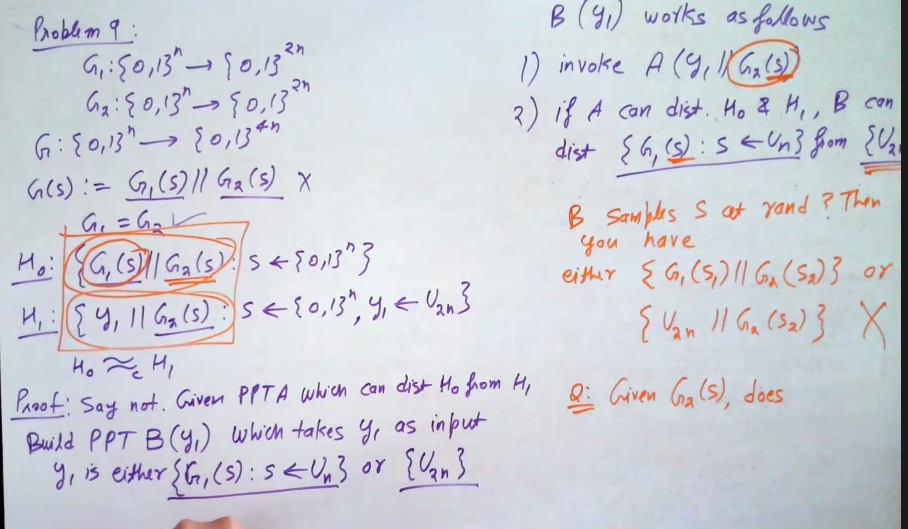 Problem 9:
G₁: {0,1}ⁿ → {0,1}²ⁿ
G₂: {0,1}ⁿ → {0,1}²ⁿ
G: {0,1}ⁿ → {0,1}⁴ⁿ
G(s) := G₁(s) || G₂(s) X
G₁ = G₂ ✓
H₀: {G₁(s) || G₂(s) : s ← {0,1}ⁿ}
H₁: {y₁ || G₂(s) : s ← {0,1}ⁿ, y₁ ← U₂ₙ}
H₀ ≈c H₁
Proof: Say not. Given PPT A which can dist H₀ from H₁
Build PPT B(y₁) which takes y₁ as input
y₁ is either {G₁(s) : s ← Uₙ} or {U₂ₙ}
B(y₁) works as follows
1) invoke A(y₁ || G₂(s))
2) if A can dist. H₀ & H₁, B can
dist {G₁(s) : s ← Uₙ} from {U₂ₙ
B samples S at rand? Then
you have
either {G₁(s₁) || G₂(s₂)} or
{U₂ₙ || G₂(s₂)} X
Q: Given G₂(s), does